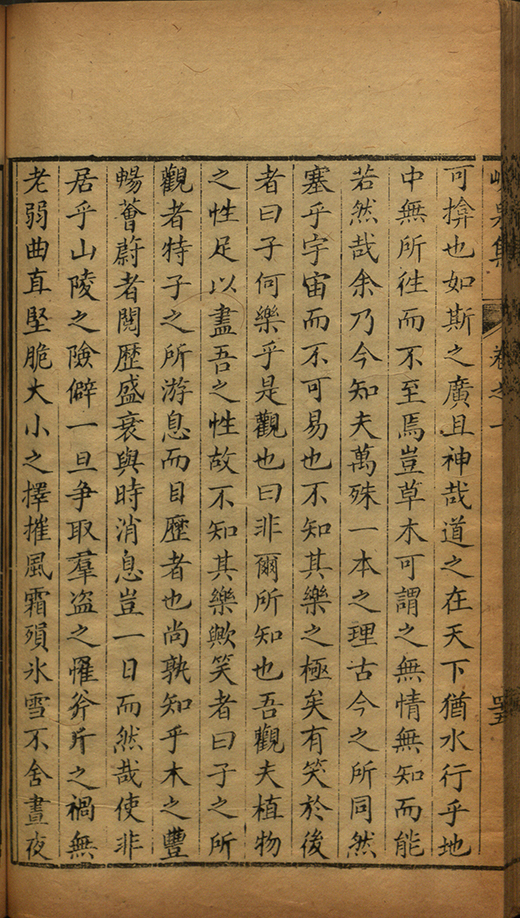 峴泉集
卷之一
四五
可揜也如斯之廣且神哉道之在天下猶水行乎地
中無所徃而不至焉豈草木可謂之無情無知而能
若然哉余乃今知夫萬殊一本之理古今之所同然
塞乎宇宙而不可易也不知其樂之極矣有笑於後
者曰子何樂乎是觀也曰非爾所知也吾觀夫植物
之性足以盡吾之性故不知其樂歟笑者曰子之所
觀者特子之所游息而目歷者也尚孰知乎木之豐
暢薈蔚者閱歷盛衰與時消息豈一日而然哉使非
居乎山陵之險僻一旦争取羣盗之罹斧斤之禍無
老弱曲直堅脆大小之擇摧風霜殞氷雪不舍晝夜